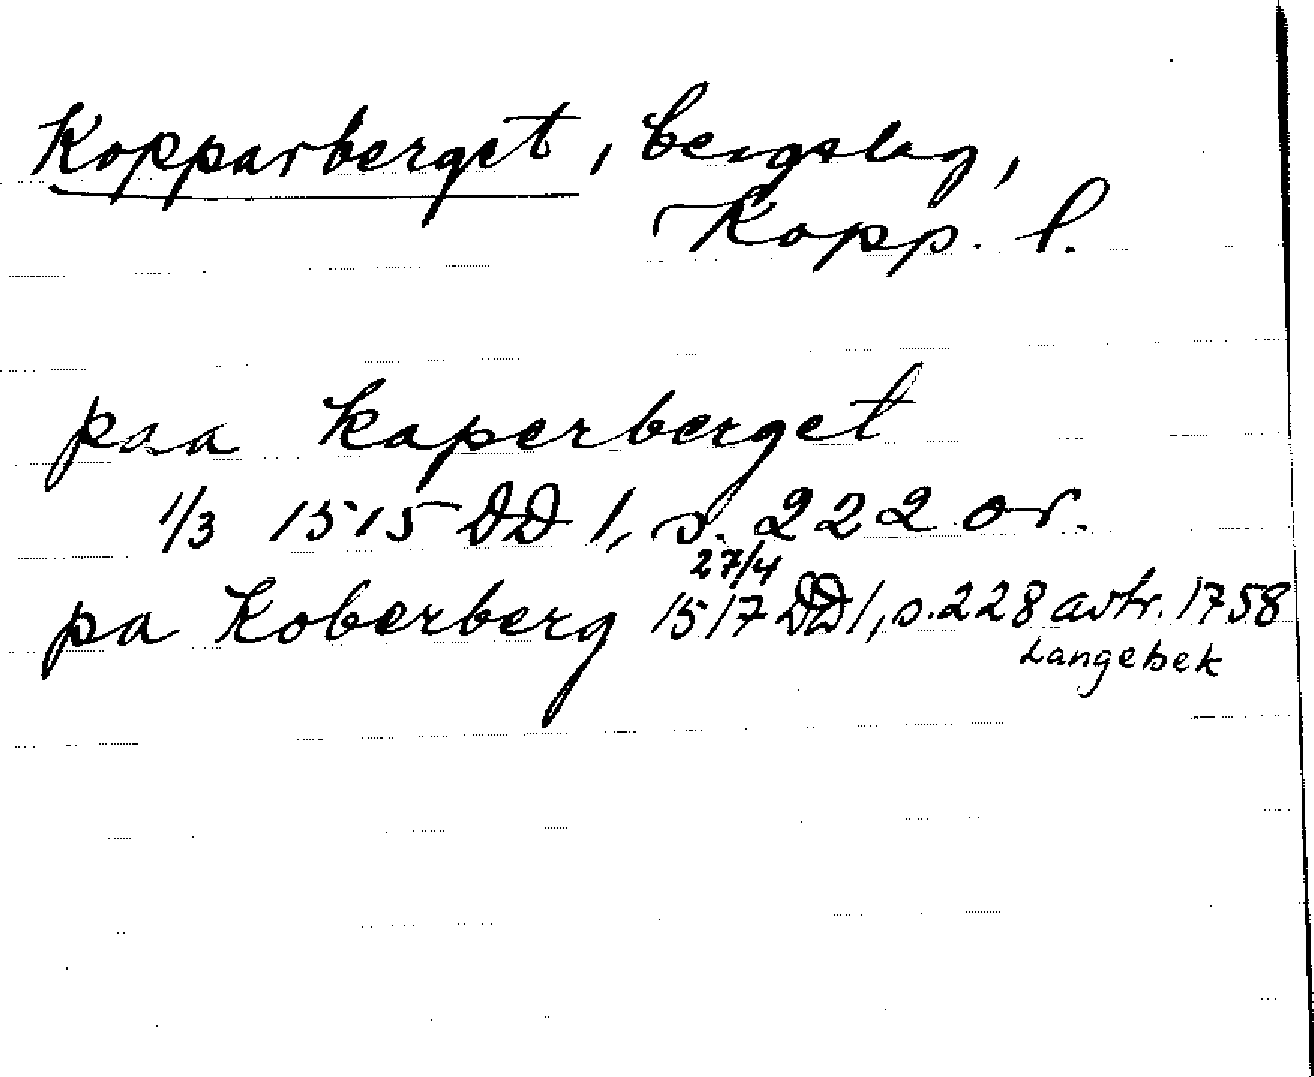 Kopparberget, bergslag,
Kopp. l.
paa kaperberget
1/3 1515 DD 1, s. 222 or.
27/4
pa Koberberg 1517 DD 1, s. 228 avtr. 1758
Langebek